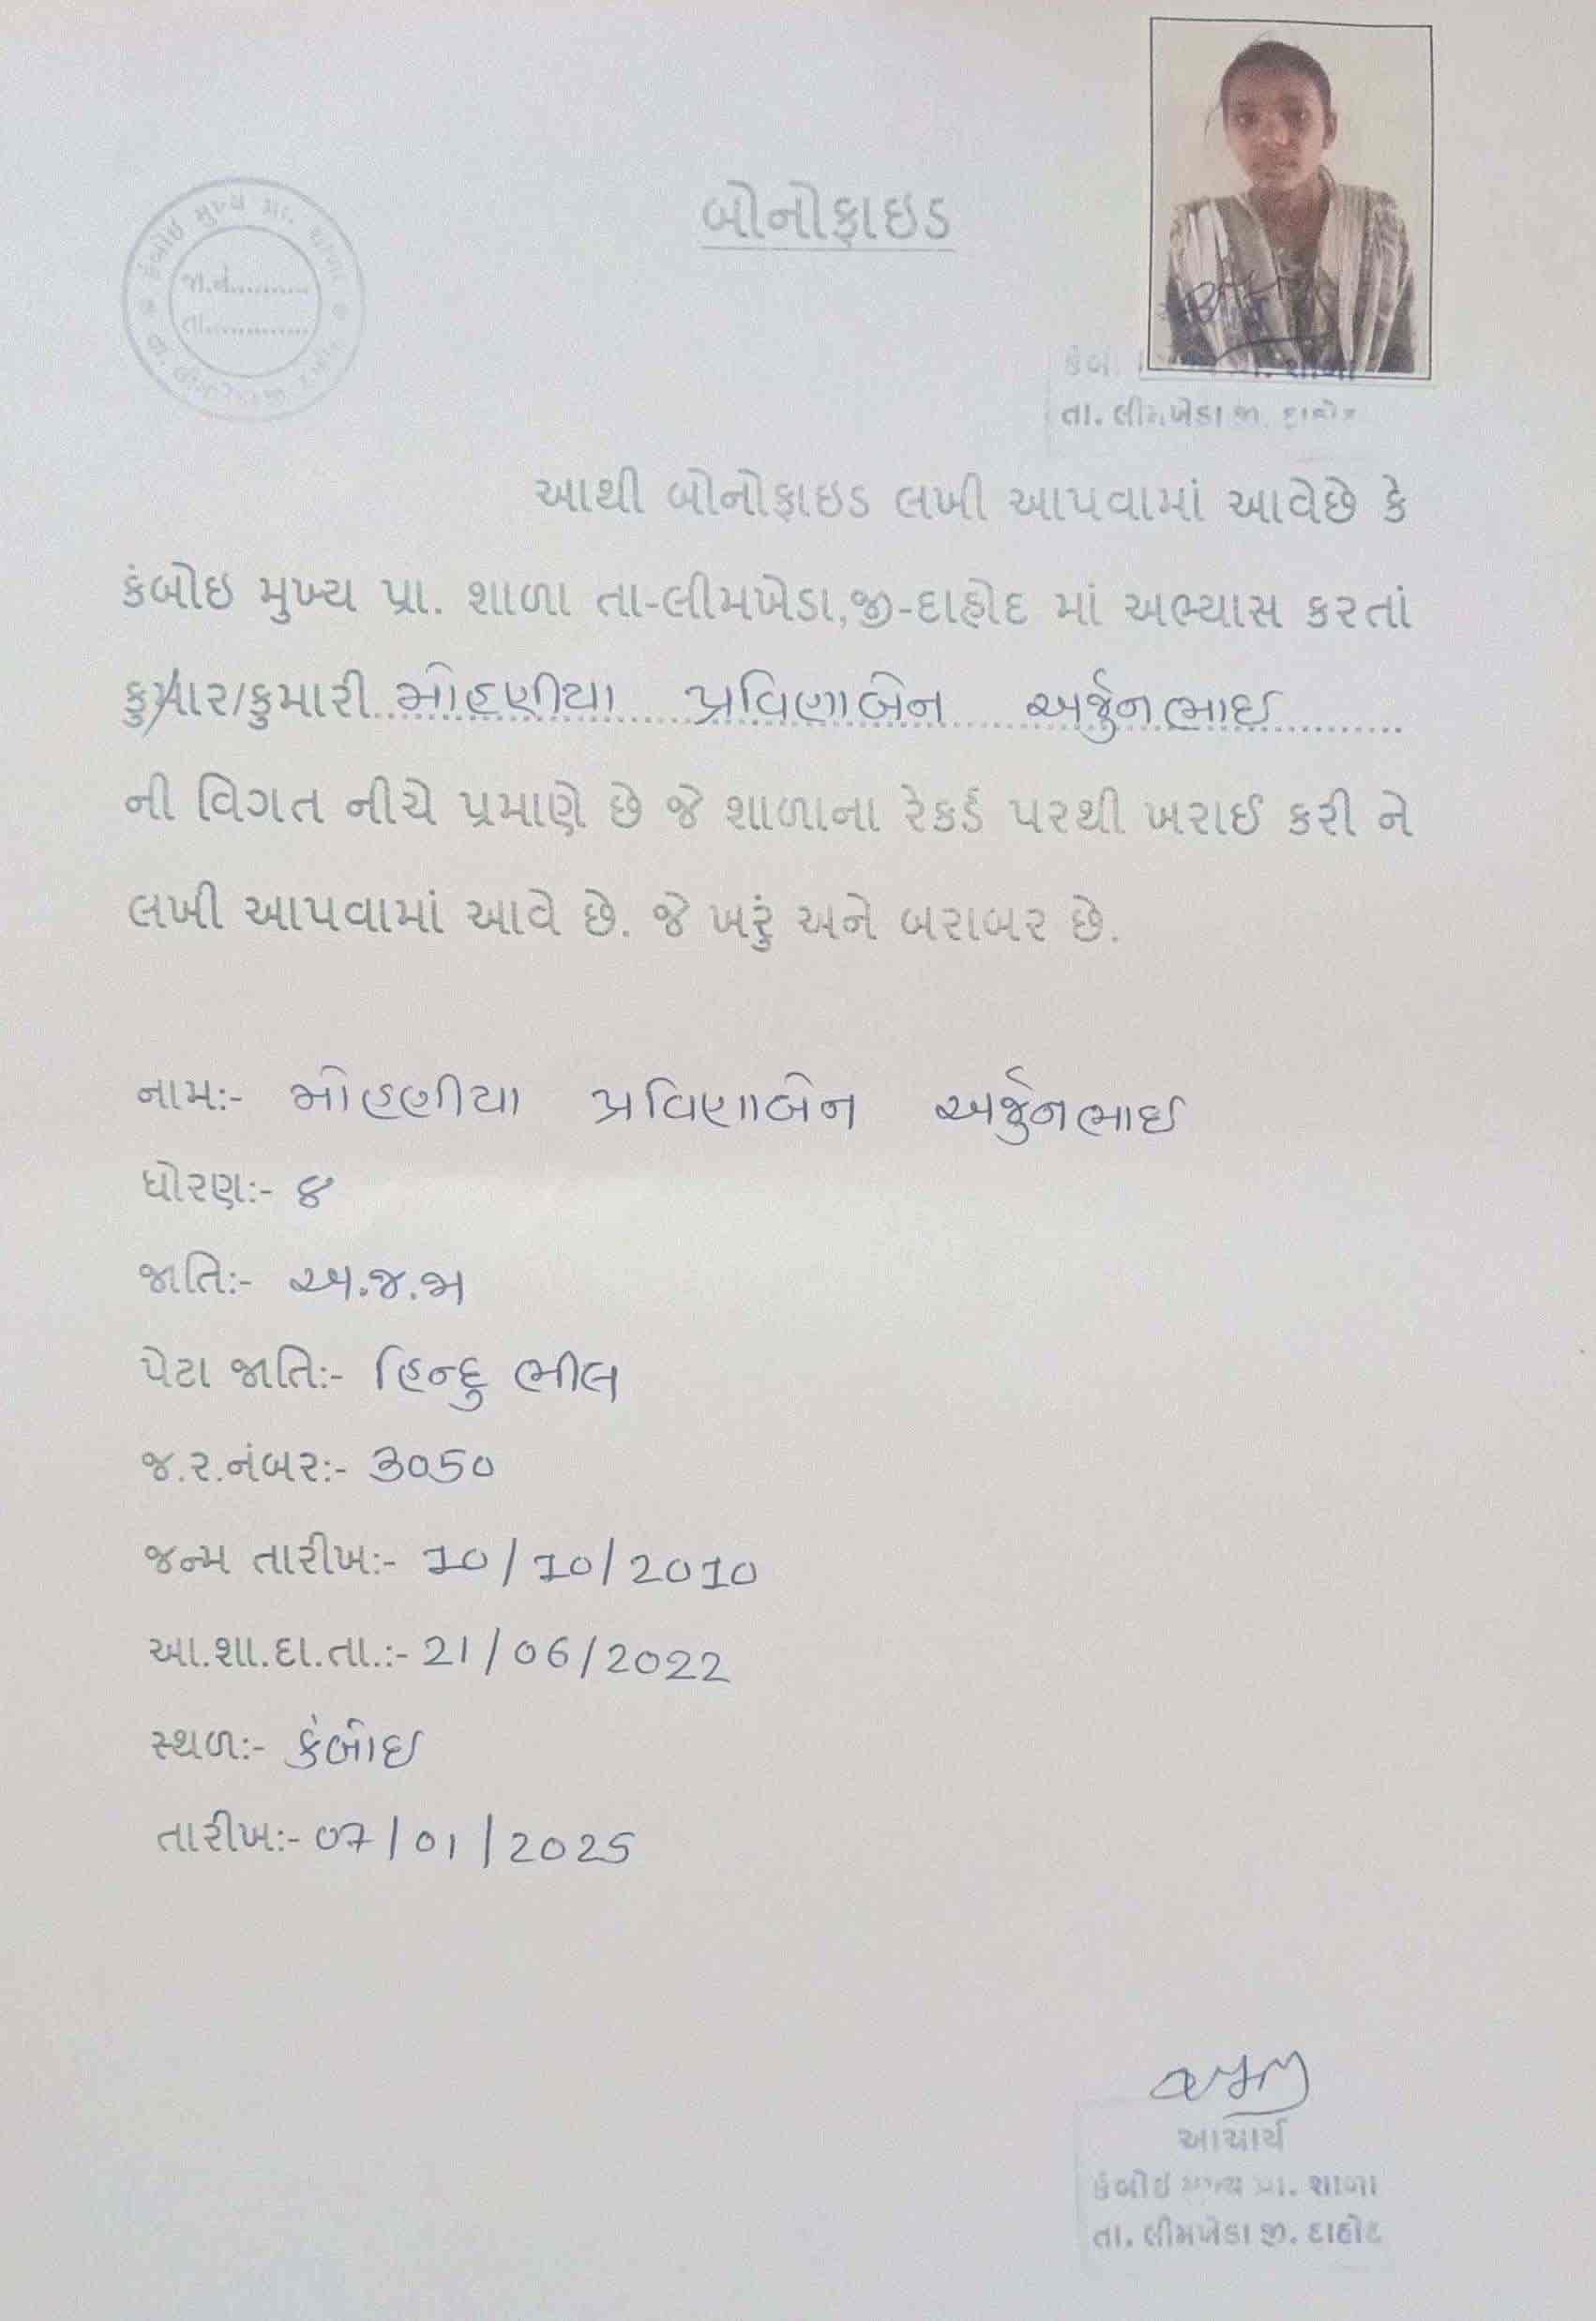 બોનોફાઇડ
કંબોઇ મુખ્ય પ્રા. શાળા
જા.નં..........
તા..............
તા. લીમખેડા જી. દાહોદ
શાળા
તા. લીમખેડા જી. દાહોદ
આથી બોનોફાઇડ લખી આપવામાં આવેછે કે
કંબોઇ મુખ્ય પ્રા. શાળા તા-લીમખેડા,જી-દાહોદ માં અભ્યાસ કરતાં
કુમાર/કુમારી મોહણીયા પ્રવિણાબેન અર્જુનભાઈ
ની વિગત નીચે પ્રમાણે છે જે શાળાના રેકર્ડ પરથી ખરાઈ કરી ને
લખી આપવામાં આવે છે. જે ખરું અને બરાબર છે.
નામ:- મોહણીયા પ્રવિણાબેન અર્જુનભાઈ
ધોરણ:- ૪
જાતિ:- અ.જ.જા
પેટા જાતિ:- હિન્દુ ભીલ
જ.ર.નંબર:- 3050
જન્મ તારીખ:- 10/10/2010
આ.શા.દા.તા.:- 21/06/2022
સ્થળ:- કંબોઇ
તારીખ:- 07/01/2025
આચાર્ય
કંબોઇ મુખ્ય પ્રા. શાળા
તા. લીમખેડા જી. દાહોદ